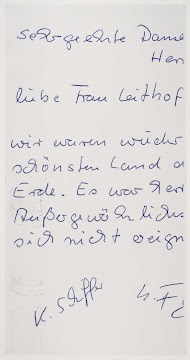 Sehr geehrte Dame
Her
liebe Frau Leithof
wir waren wieder
schönsten Land d
Erde. Es war her
Außergewöhnliche
sich nicht ereign
K. Steffe